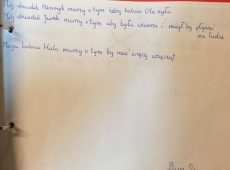 Mój dziadek Henryk marzy o tym żeby babcia Ula żyła
Mój dziadek Jurek marzy o tym aby była wiosna i mógł by pływać
na łódce
Moja babcia Hala marzy o tym by mieć więcej wnucząt